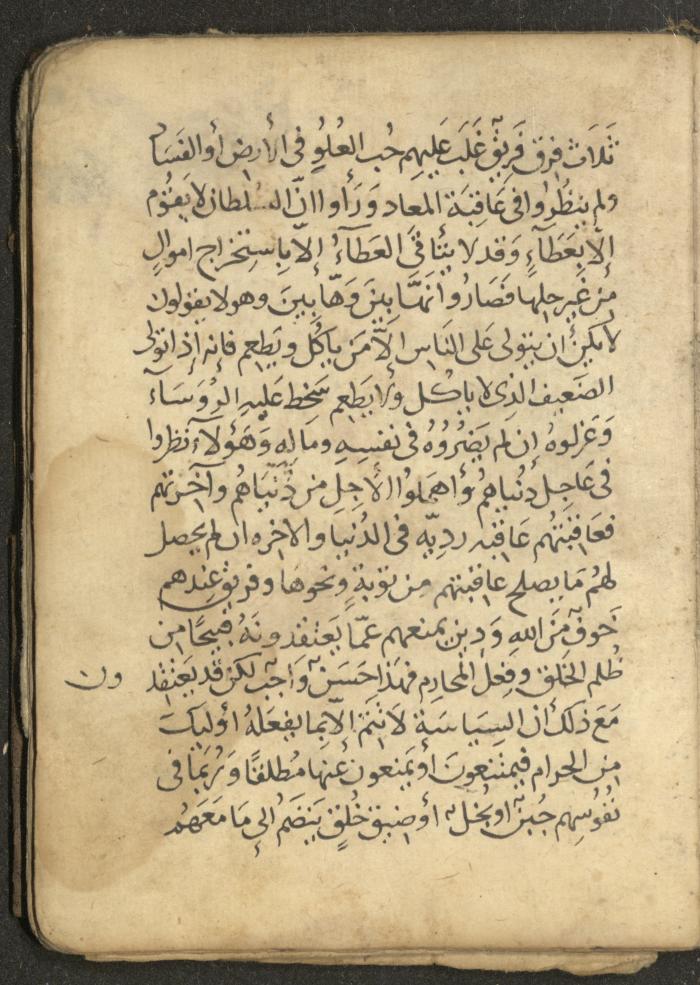 ثَلَاث فِرَق فَرِيقٌ غَلَبَ عَلَيهِم حُب العُلُوِ فى الأرض أو الفَسَاد
ولم ينظُرُوا فى عَاقِبَة المعاد وَرَأوا انّ السلطان لا يَقُوم
إلّا بِعَطَآءٍ وَقد لا يتأتى العَطَآءُ إلّا باستِخراج اموالٍ
مِن غَير حِلها فصَارُوا نَهّابِينَ وَهّابِينَ وهولا يقولون
لا يمكن أن يتولى عَلى النَاسِ إلّا مَن يأكُل ويَطعِم فإنه إذا تولى
الضَعيف الذِى لا ياكل ولا يَطعِم سَخط عَليهِ الرُوَسَآءُ
وَعَزلوهُ إن لم يَضُرُوُهُ فى نفسِهِ ومَالِهِ وَهَؤلَآء نظروا
فى عَاجِل دُنياهُم وَأهمَلوا الأجِلِ مِن دُنيَاهُم وآخَرتهم
فعَاقبَتُهُم عَاقبه رديّه فى الدُنيا والاخره ان لم يحصل
لهُم مَا يصلح عاقبتهم مِن توبةٍ ونحوها وفريق عِندهم
خَوفٌ مَنَ اللهِ وَدِين يمنعهم عَمّا يَعتقدونَهُ قبيحًا من
ظُلم الخَلق وفِعل المحارِم فهذا حَسَنٌ وَاجبٌ لكن قد يَعتقِد
ون
مَعَ ذلك أن السِيَاسَةَ لا تَتم إلّا بما يفعَلهُ أولئِكَ
مِن الحرام فيمتنعون أو يمنعون عنها مُطلقًا وَرُبَما فى
نُفُوسِهِم جُبنٌ او بُخلٌ أو ضِيق خُلقٍ يَنضَمُ إلى مَا مَعَهُم